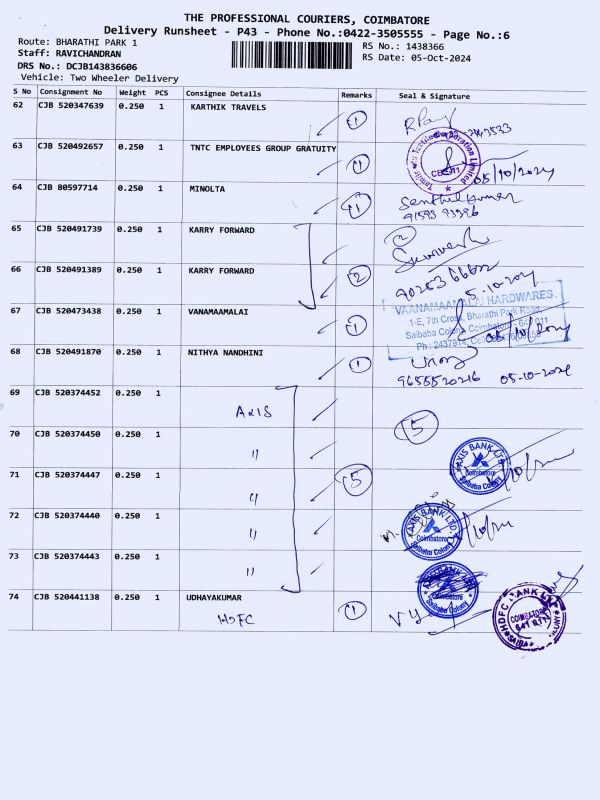 THE PROFESSIONAL COURIERS, COIMBATORE
Delivery Runsheet - P43 - Phone No.:0422-3505555 - Page No.:6
Route: BHARATHI PARK 1
RS No.: 1438366
Staff: RAVICHANDRAN
RS Date: 05-Oct-2024
DRS No.: DCJB143836606
Vehicle: Two Wheeler Delivery
S No Consignment No Weight PCS Consignee Details Remarks Seal & Signature
62 CJB 520347639 0.250 1 KARTHIK TRAVELS 1
63 CJB 520492657 0.250 1 TNTC EMPLOYEES GROUP GRATUITY 1
05/10/2024
64 CJB 80597714 0.250 1 MINOLTA 1 Senthil kumar
65 CJB 520491739 0.250 1 KARRY FORWARD 2
66 CJB 520491389 0.250 1 KARRY FORWARD 2
5-10-2024
67 CJB 520473438 0.250 1 VANAMAAMALAI 1
VAANAMAAMALAI HARDWARES
1-E, 7th Cross, Bharathi Park Road,
Saibaba Colony, Coimbatore - 641 011
68 CJB 520491870 0.250 1 NITHYA NANDHINI 1
9655520216 05-10-2024
69 CJB 520374452 0.250 1 AXIS 5
70 CJB 520374450 0.250 1 "
AXIS BANK LTD Coimbatore Saibaba Colony
71 CJB 520374447 0.250 1 " 5
72 CJB 520374440 0.250 1 "
AXIS BANK LTD Coimbatore Saibaba Colony
73 CJB 520374443 0.250 1 "
Saibaba Colony
74 CJB 520441138 0.250 1 UDHAYAKUMAR 1
HDFC
HDFC BANK LTD COIMBATORE 641 011